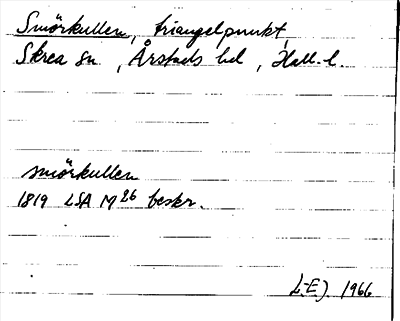 Smörkullen, triangelpunkt,
Skrea sn, Årstads hd, Hall. l.
smörkullen
1819 LSA M26 beskr.
L.E.J. 1966